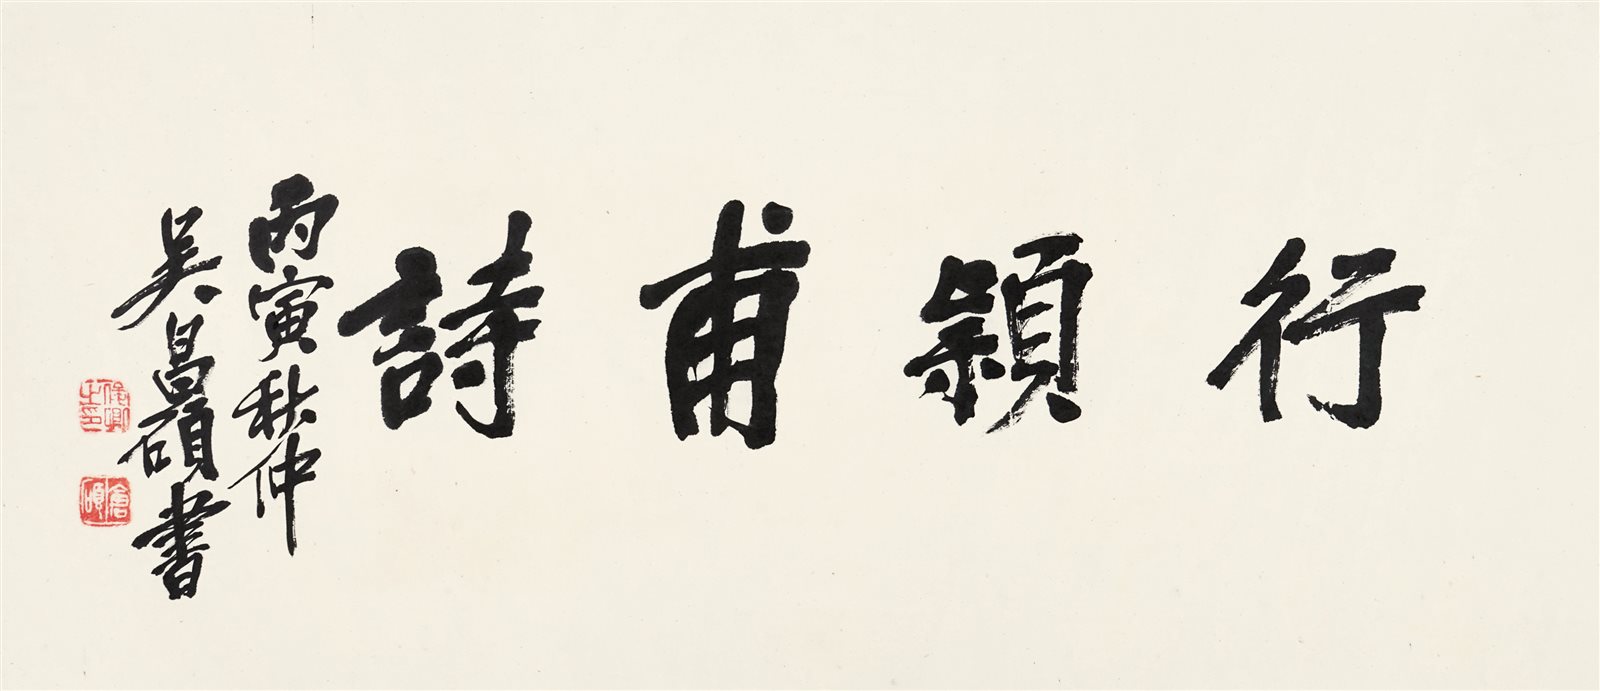 行穎甫詩
丙寅秋仲
吳昌碩書
俊卿之印
倉碩